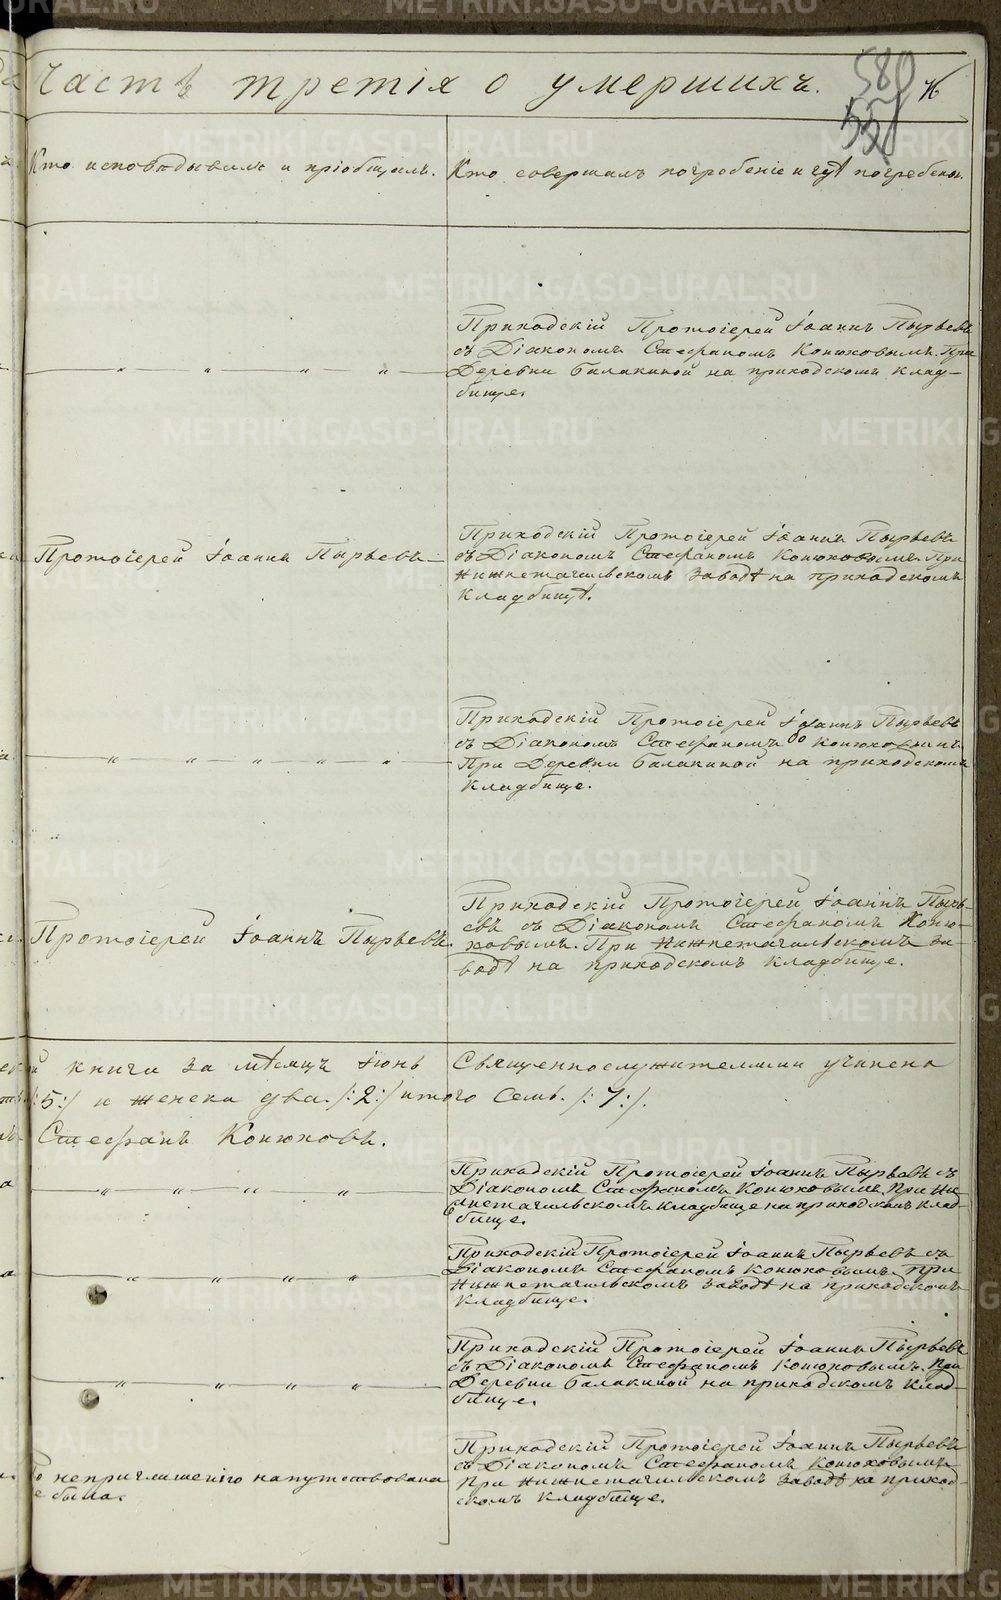 Часть третія о умершихъ.
580
Кто исповѣдывалъ и пріобщалъ.
Кто совершалъ погребеніе и гдѣ погребены.
Приходскій Протоіерей Іоаннъ Пырьевъ
съ Діакономъ Стефаномъ Конюховымъ. При
Деревни Балакиной на приходскомъ клад-
бище.
Протоіерей Іоаннъ Пырьевъ
Приходскій Протоіерей Іоаннъ Пырьевъ
съ Діакономъ Стефаномъ Конюховымъ. При
Нижнетагильскомъ заводѣ на приходскомъ
кладбищѣ.
Приходскій Протоіерей Іоаннъ Пырьевъ
съ Діакономъ Стефаномъ Конюховымъ.
При Деревни Балакиной на приходскомъ
кладбище.
Протоіерей Іоаннъ Пырьевъ.
Приходскій Протоіерей Іоаннъ Пырь-
евъ съ Діакономъ Стефаномъ Коню-
ховымъ. При Нижнетагильскомъ за-
водѣ на приходскомъ кладбище.
книги за мѣсяцъ Іюнь Священнослужителями учинена
/:5:/ и женска два. /:2:/ итого семь. /:7:/.
Стефанъ Конюховъ.
Приходскій Протоіерей Іоаннъ Пырьевъ съ
Діакономъ Стефаномъ Конюховымъ. При Ни-
жнетагильскомъ кладбище на приходскомъ клад-
бище.
Приходскій Протоіерей Іоаннъ Пырьевъ съ
Діакономъ Стефаномъ Конюховымъ. При
Нижнетагильскомъ заводѣ на приходскомъ
кладбище.
Приходскій Протоіерей Іоаннъ Пырьевъ
съ Діакономъ Стефаномъ Конюховымъ. При
Деревни Балакиной на приходскомъ клад-
бище.
По неприглашенію напутствована
не была.
Приходскій Протоіерей Іоаннъ Пырьевъ
съ Діакономъ Стефаномъ Конюховымъ
При Нижнетагильскомъ заводѣ на приход-
скомъ кладбище.
METRIKI.GASO-URAL.RU